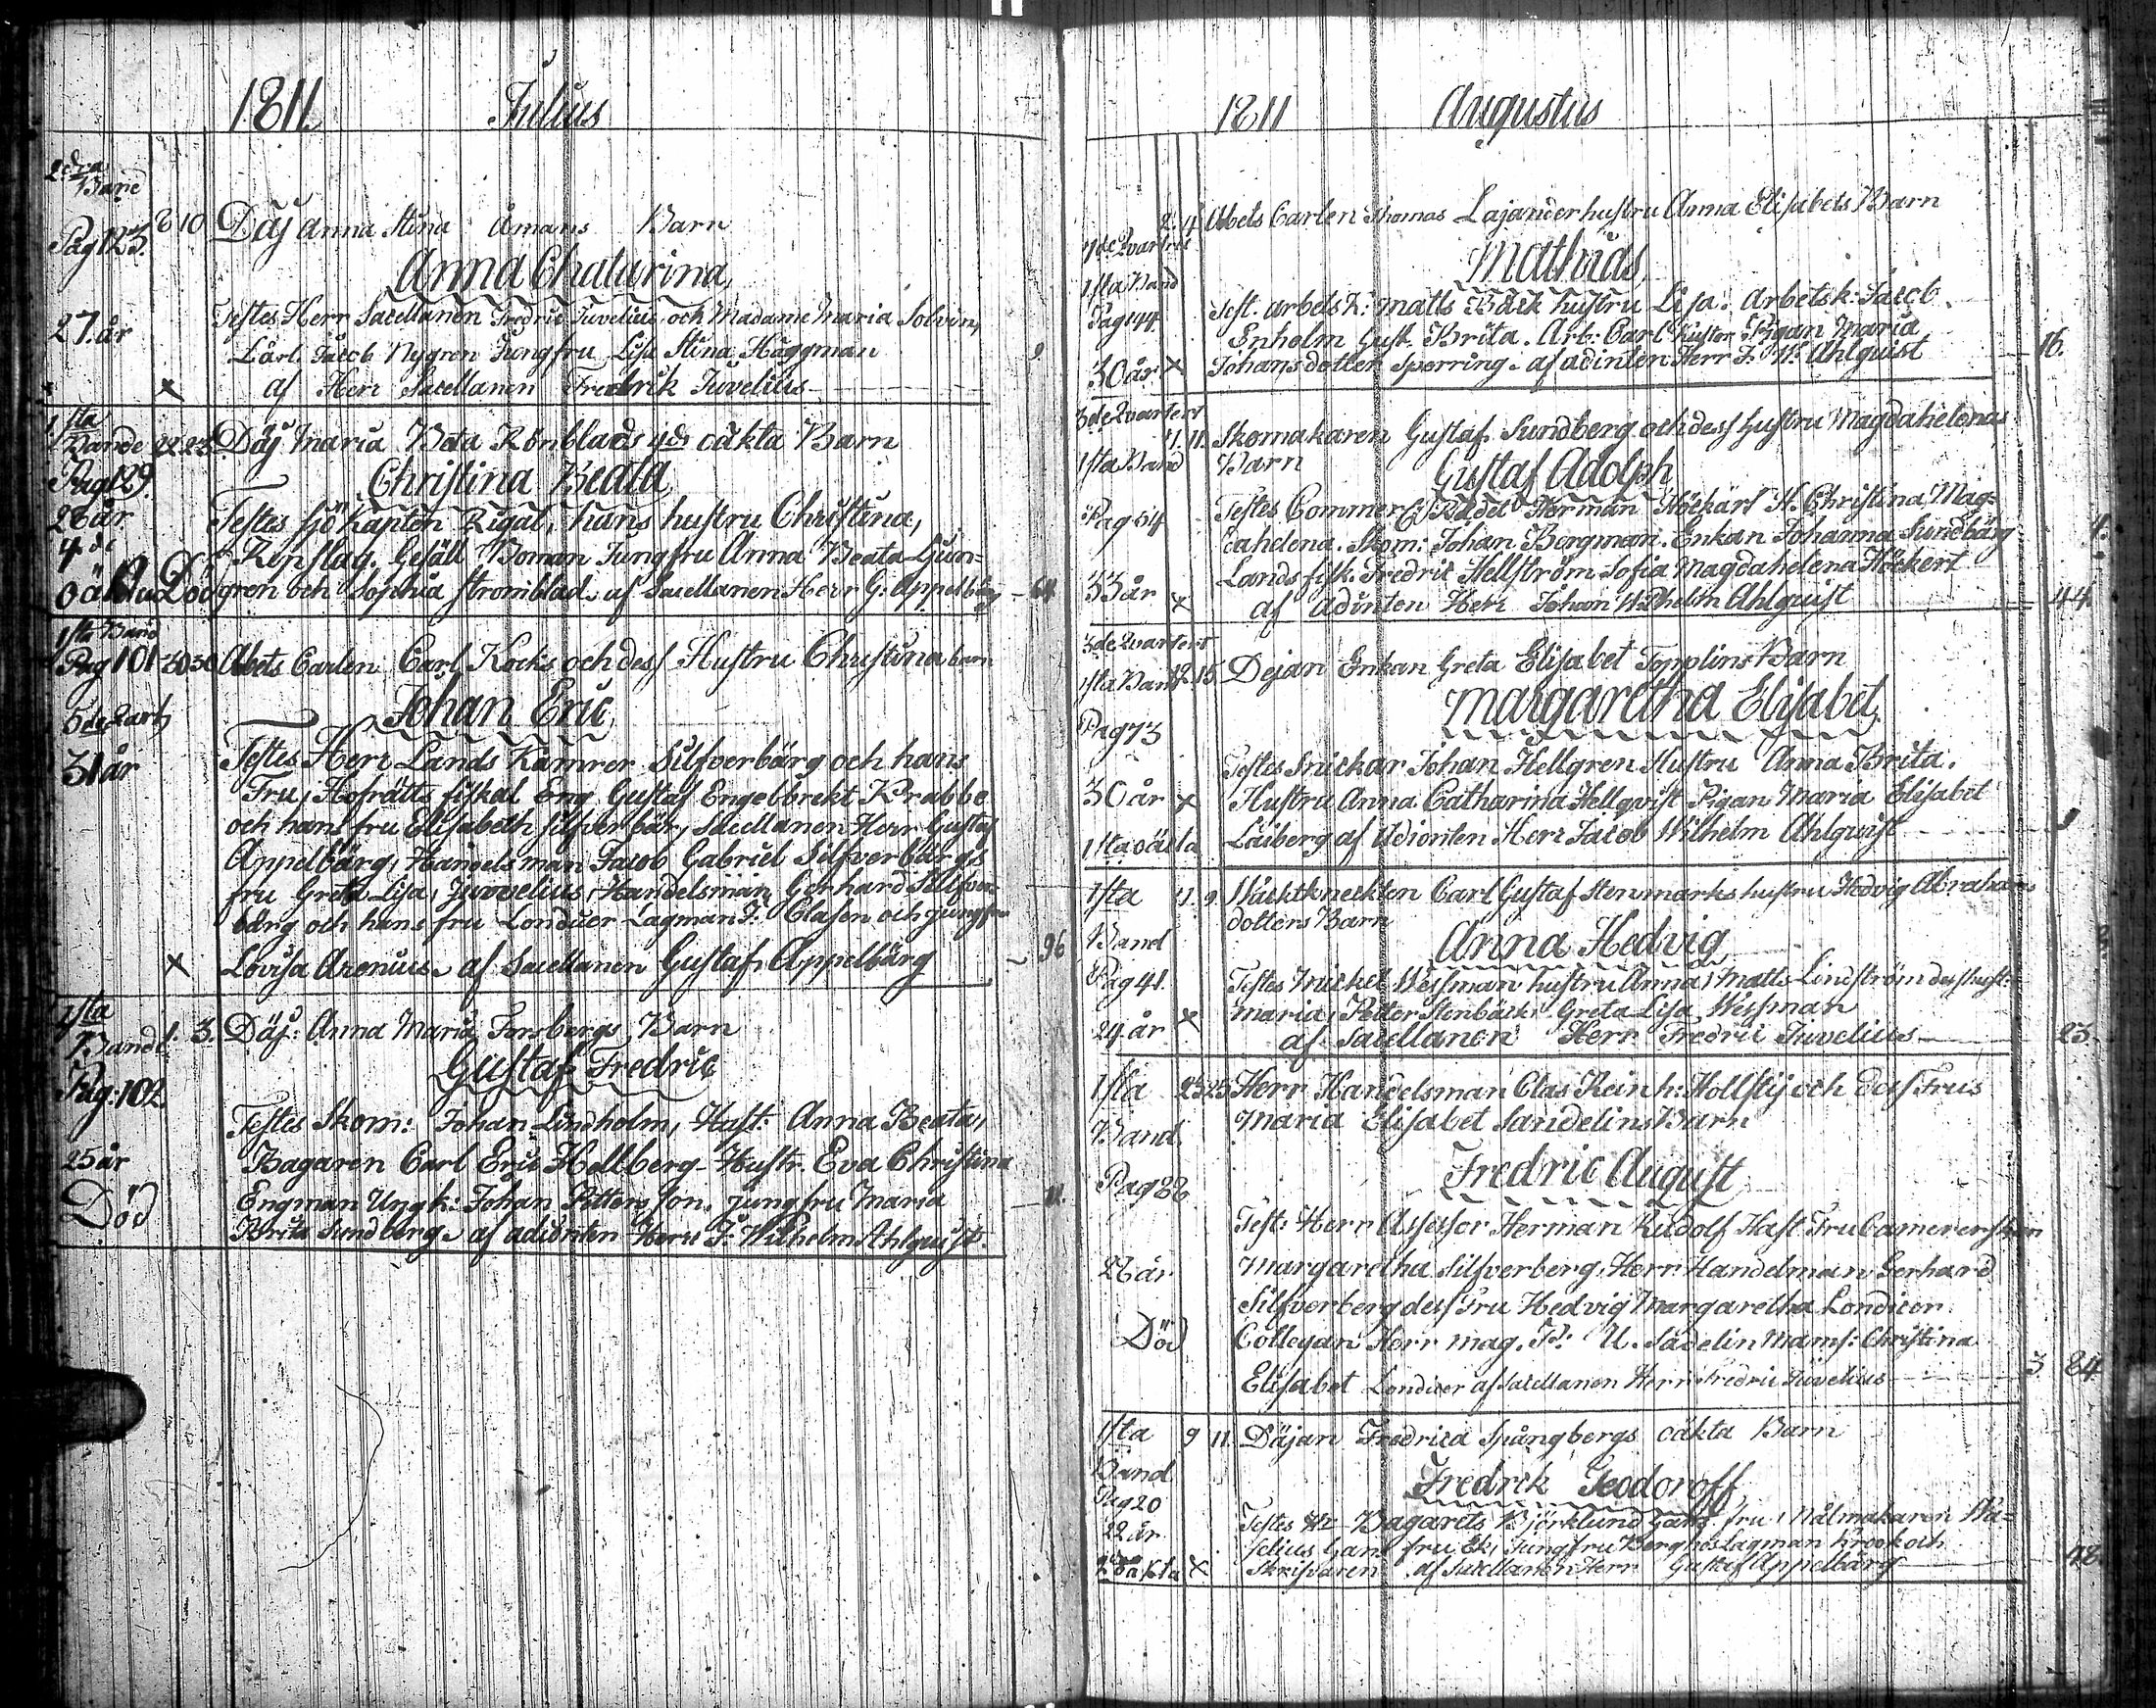 1811. Julius
2dra Band
Pag 123. 8 10 Däj Anna Stina Åmans Barn
Anna Chatarina,
27. år Testes Herr Sacellanen Fredric Juvelius, och Madame Maria Solvin,
Lärl. Jacob Nygren Jungfru Lisa Stina Häggman 9
x af Herr Sacellanen Fredrik Juvelius
1sta
Bande 22 23 Däj Maria Beta Rönblads 4de oäkta Barn
Pag 129. Christina Beata,
28 år Testes Sjö Kapten Rigal, hans hustru Christina,
4 de Repslag. Gesäll Boman Jungfru Anna Beata Ljun-
oäkta Död gren och Sophia Stromblad. af Sacellanen Herr G. Appelbärg 64
1sta Band
Pag 101 30 30 Abets Carlen Carl Kocks och dess Hustru Christina barn
Johan Eric,
5de Qart
31 år Testes Herr Lands Kamrer Silfverbärg och hans
Fru, Hofrätts fiskal Eng Gustaf Engelbrekt Krabbe
och hans fru Elisabeth Silfverbär, Sacellanen Herr Gustaf
Appelbärg, Handelsman Jacob Gabriel Silfverbärgs
fru Greta Lisa Juvvelius, Handelsman Gerhard Silfver-
bärg och hans fru Londicer Lagman J. Clasen och jungfru
x Lovisa Arenius. af Sacellanen Gustaf Appelbärg 96
1sta
Band 1. 3. Däj: Anna Maria Forsbergs Barn
Gustaf Fredric
Pag: 102.
Testes Skom: Johan Lindholm, Hust: Anna Beata,
25 år Bagaren Carl Eric Hellberg Hustr. Eva Christina
Död Engman Ungk: Johan Petters son, jungfru Maria
Brita Sundberg. af adiönten Herr J: Wilhelm Ahlquist.
1811 Augustus
2. 4. Abets Carlen Thomas Lajander hustru Anna Elisabets Barn
Qvartret
Mathias,
1sta Band
Pag 144. Test. arbetsk: Matts Bäck hustru Lisa. Arbetsk: Jacob
Enholm hust. Brita. Arb: Carl Kuster Pigan Maria
30 år x Johansdotter Sperring. af adinten Herr J. W. Ahlquist 16.
3de Qvartert
11. Skomakaren Gustaf Sundberg och dess hustru Magdahelenas
1sta Band Barn Gustaf Adolph
Pag 54 Testes Commerce Rådet Herman Höckärt H. Christina Mag- 4.
dahelena. Skom: Johan Bergman. Enkan Johanna Sundbärg
33 år Landsfisk. Fredric Hellström Sofia Magdahelena Höckert
x af Adinten Herr Johan Wilhelm Ahlquist 44.
3de Qvartert
1sta Band 12. 15. Dejan Enkan Greta Elisabet Topplins Barn
Margaretha Elisabet,
Pag 73
Testes Snickar Johan Hellgren Hustru Anna Brita.
30 år x Hustru Anna Catharina Hellqvist Pigan Maria Elisabet
1sta oäkta af Adionten Herr Jacob Wilhelm Ahlquist
1sta 9. Wäcktkneckten Carl Gustaf Stenmarks hustru Hedvig Abrahams
dotters Barn
Band Anna Hedvig
Pag 41. Testes Wessman hustru Anna, Matts Lindström dess hust:
Maria, Petter Stenbäck Greta Lisa Wessman
24. år x af Sacellanen Herr Fredric Juvelius 23.
1sta 23 25 Herr Handelsman Clas Reinh: Hollstij och dess Frus
Maria Elisabet Sandelins Barn
Band Fredric August
Pag 88
Test: Herr Assessor Herman Rudolf Hast Fru Camererskan
28 år Margaretha Silfverberg, Herr Handelman Gerhard
Silfverberg dess Fru Hedvig Margaretha Londicer
Död Collegan Herr Mag. P: U. Sadelin Mams: Christina
Elisabet Londicer af Sacellanen Herr Fredric Juvelius 3 84
1sta 9 11. Däjan Fredrica Spångbergs oäkta Barn
Band
Fredrik Teodoroff,
Pag 20
22 år Testes Bagarets Björklund hans fru, Målmakaren
hans fru Ek, Jungfru Berg hos Lagman Krook och
2dra oäkta x Skrifvaren af Sacellanen Herr Gustaf Appelbärg 48.